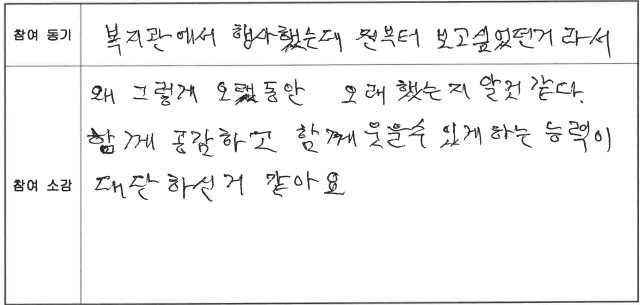 참여 동기
복지관에서 행사했는데 전부터 보고싶었던거 라서
왜 그렇게 오랫동안 오래 했는지 알것 같다.
함께 공감하고 함께 웃을수 있게하는 능력이
참여 소감
대단하신거 같아요